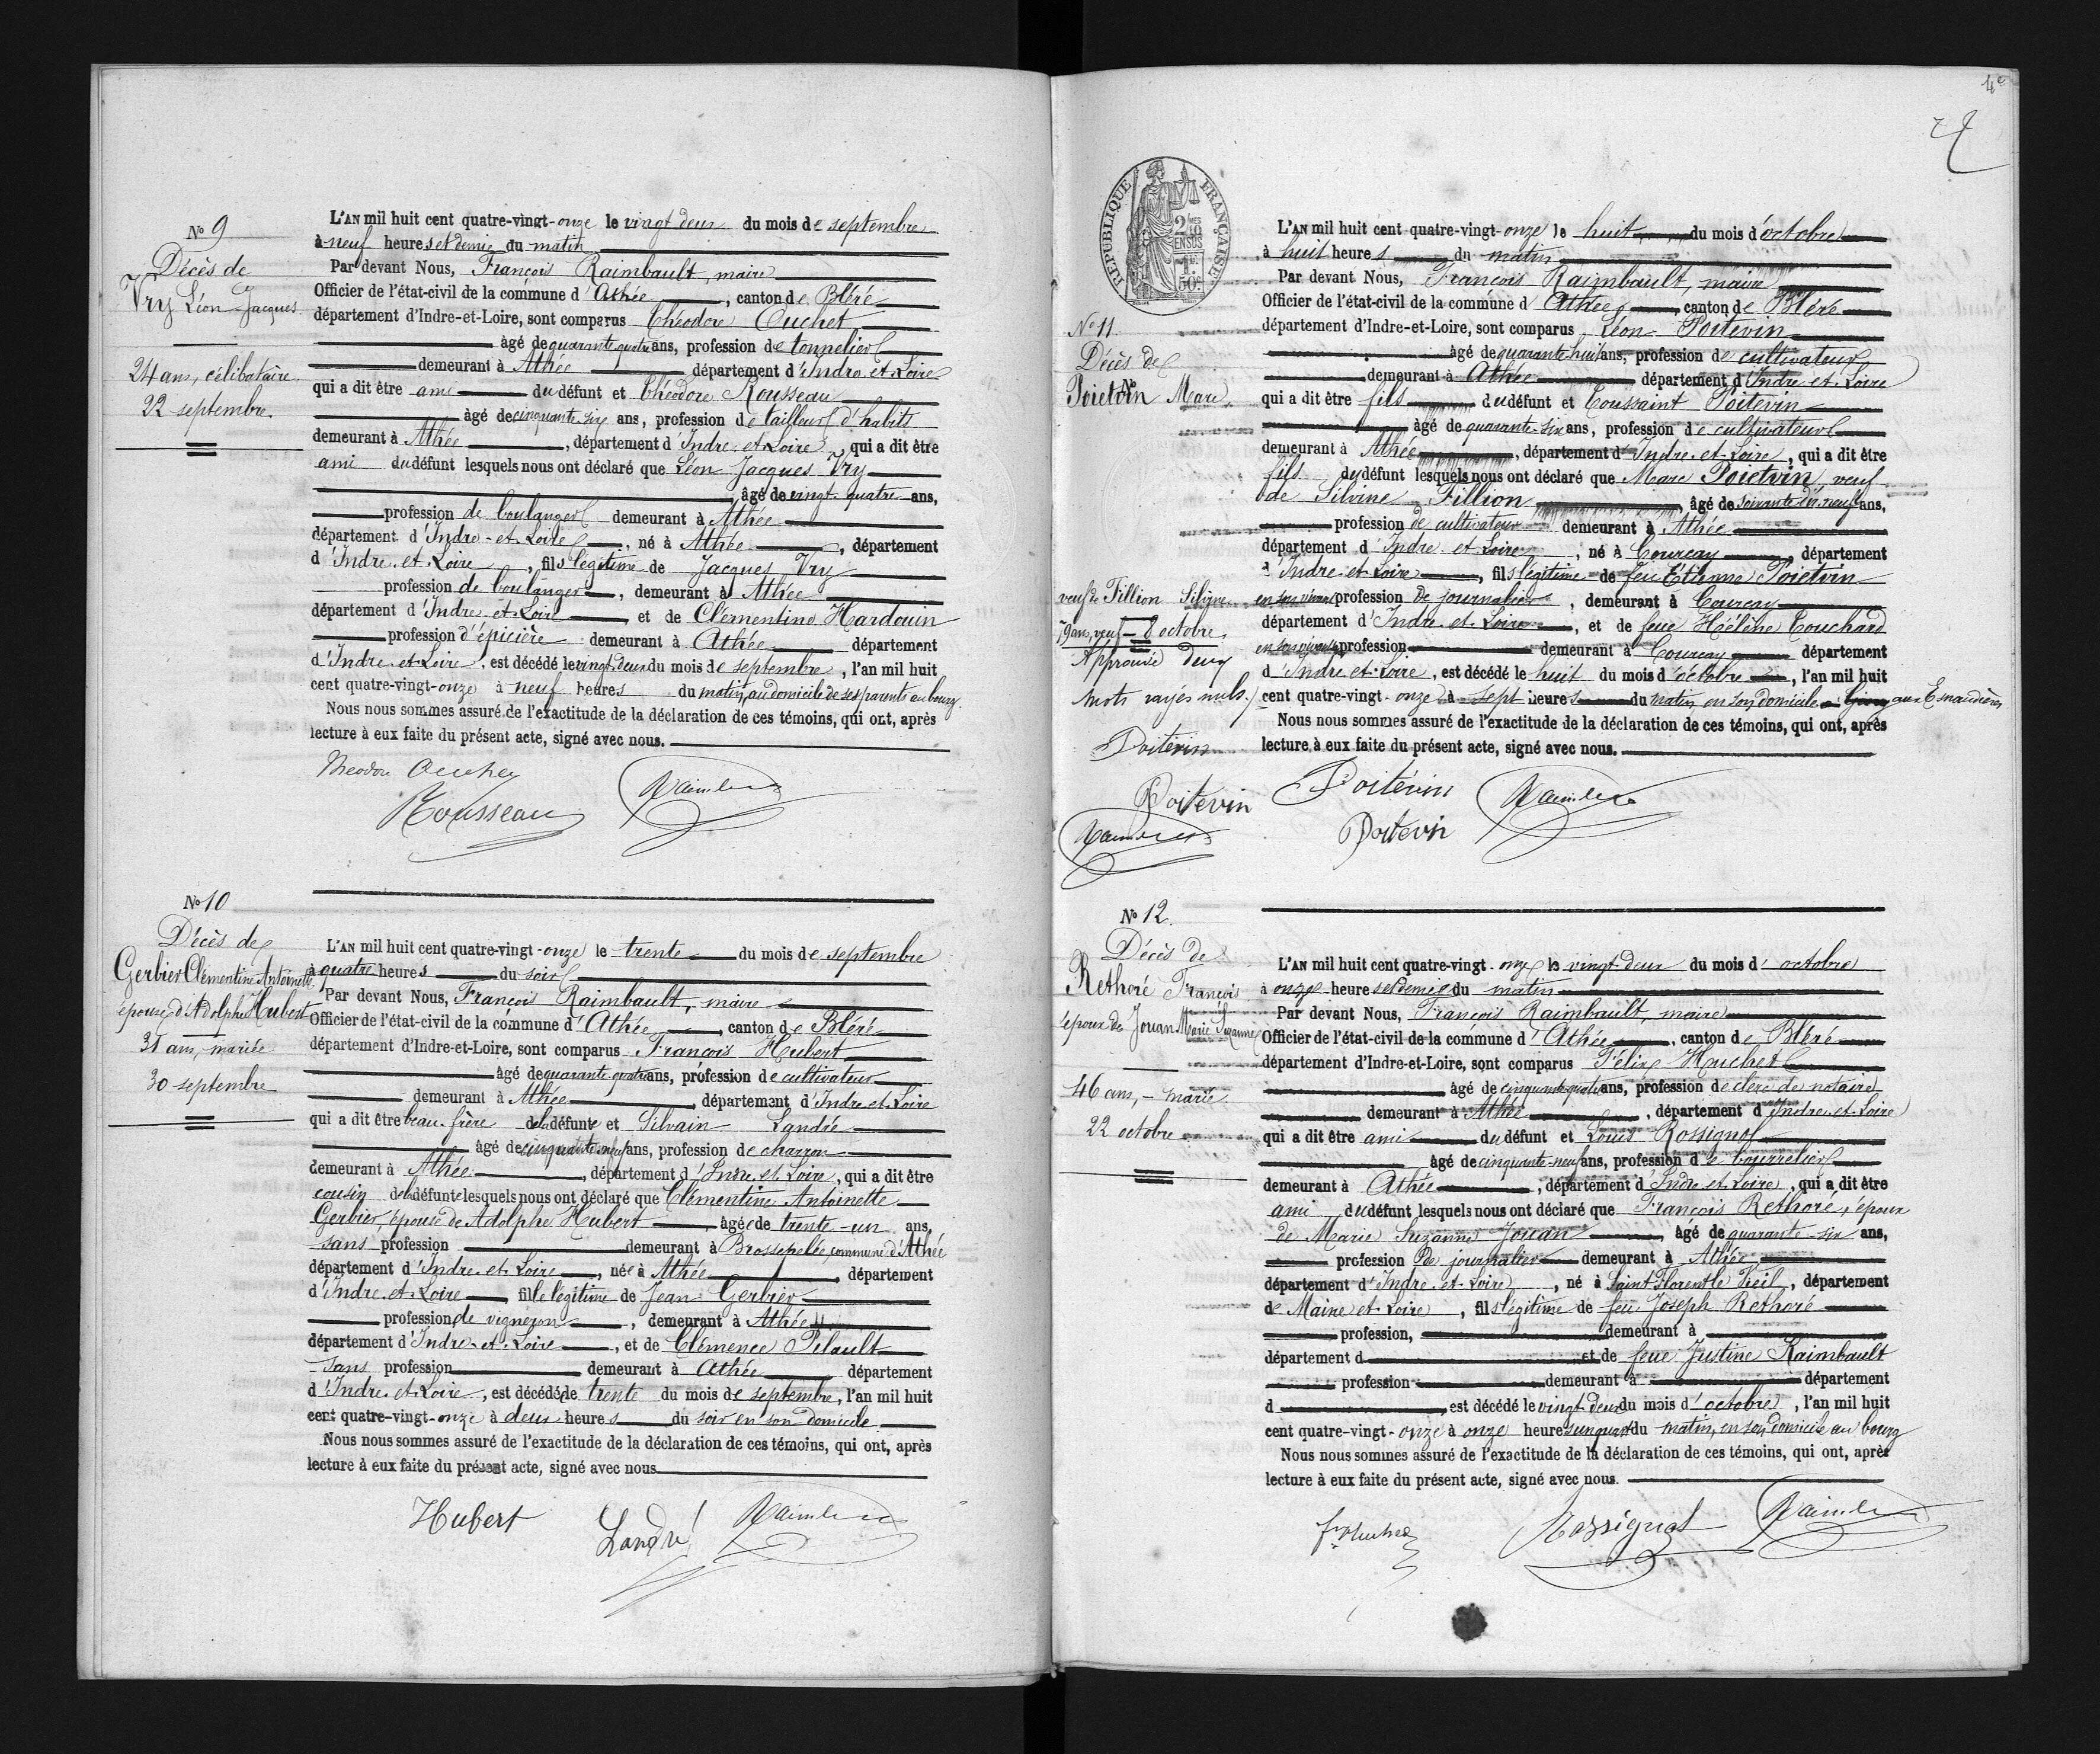 No 9
Décès de
Vry Léon Jacques
24 ans, célibataire
22 septembre
L'AN mil huit cent quatre-vingt-onze le vingt deux du mois de septembre
à neuf heures et demie du matin
Par devant Nous, François Raimbault, maire
Officier de l'état-civil de la commune d'Athée, canton de Bléré
département d'Indre-et-Loire, sont comparus Théodore Ouchet
âgé de quarante quatre ans, profession de tonnelier
demeurant à Athée département d'Indre et Loire
qui a dit être ami du défunt et Théodore Rousseau
âgé de cinquante six ans, profession de tailleur d'habits
demeurant à Athée, département d'Indre et Loire, qui a dit être
ami du défunt lesquels nous ont déclaré que Léon Jacques Vry
âgé de vingt quatre ans,
profession de boulanger demeurant à Athée
département d'Indre-et-Loire, né à Athée, département
d'Indre et Loire, fils légitime de Jacques Vry
profession de boulanger, demeurant à Athée
département d'Indre et Loire et de Clémentine Hardouin
profession d'épicière demeurant à Athée département
d'Indre et Loire, est décédé le vingt deux du mois de septembre, l'an mil huit
cent quatre-vingt-onze à neuf heures du matin, au domicile de ses parents au bourg.
Nous nous sommes assuré de l'exactitude de la déclaration de ces témoins, qui ont, après
lecture à eux faite du présent acte, signé avec nous.
Rousseau
No 10
Décès de
Gerbier Clémentine Antoinette
épouse d'Adolphe Hubert
31 ans, mariée
30 septembre
L'AN mil huit cent quatre-vingt-onze le trente du mois de septembre
à quatre heures du soir
Par devant Nous, François Raimbault, maire
Officier de l'état-civil de la commune d'Athée, canton de Bléré
département d'Indre-et-Loire, sont comparus François Hubert
âgé de quarante quatre ans, profession de cultivateur
demeurant à Athée, département d'Indre et Loire
qui a dit être beau-frère de la défunte et Silvain Landré
âgé de cinquante neuf ans, profession de charron
demeurant à Athée, département d'Indre et Loire, qui a dit être
cousin de la défunte lesquels nous ont déclaré que Clémentine Antoinette
Gerbier, épouse de Adolphe Hubert âgée de trente-un ans,
sans profession demeurant à Brossepelée, commune d'Athée
département d'Indre et Loire, née à Athée, département
d'Indre et Loire, fille légitime de Jean Gerbier
profession de vigneron, demeurant à Athée
département d'Indre et Loire, et de Clémence Pilault
sans profession demeurant à Athée département
d'Indre et Loire, est décédée le trente du mois de septembre, l'an mil huit
cent quatre-vingt-onze à deux heures du soir en son domicile
Nous nous sommes assuré de l'exactitude de la déclaration de ces témoins, qui ont, après
lecture à eux faite du présent acte, signé avec nous
Hubert
Landré
4e
RÉPUBLIQUE FRANÇAISE
2/10 EN SUS
1F. 50c.
No 11
Décès de
Poietvin Marc
veuf de Fillion Silvine
79 ans, veuf - 8 octobre
Approuvé deux
mots rayés nuls.
Poitevin
Poitevin
L'AN mil huit cent quatre-vingt-onze le huit du mois d'octobre
à huit heures du matin
Par devant Nous, François Raimbault, maire
Officier de l'état-civil de la commune d'Athée, canton de Bléré
département d'Indre-et-Loire, sont comparus Léon Poitevin
âgé de quarante huit ans, profession de cultivateur
demeurant à Athée département d'Indre et Loire
qui a dit être fils du défunt et Toussaint Poitevin
âgé de quarante-six ans, profession de cultivateur
demeurant à Athée, département d'Indre et Loire, qui a dit être
fils du défunt lesquels nous ont déclaré que Marc Poietvin, veuf
de Silvine Fillion, âgé de soixante dix neuf ans,
profession de cultivateur demeurant à Athée
département d'Indre et Loire, né à Courcay, département
d'Indre et Loire, fils légitime de feu Etienne Poietvin
en son vivant profession de journalier, demeurant à Courcay
département d'Indre et Loire, et de feue Hélène Touchard
en son vivant profession demeurant à Courcay département
d'Indre et Loire, est décédé le huit du mois d'octobre, l'an mil huit
cent quatre-vingt-onze à sept heures du matin en son domicile aux Esnaudières
Nous nous sommes assuré de l'exactitude de la déclaration de ces témoins, qui ont, après
lecture à eux faite du présent acte, signé avec nous.
Poitevin
Poitevin
No 12.
Décès de
Rethoré François
époux de Jouan Marie Suzanne
46 ans, - marié
22 octobre
L'AN mil huit cent quatre-vingt-onze le vingt deux du mois d'octobre
à onze heures et demie du matin
Par devant Nous, François Raimbault, maire
Officier de l'état-civil de la commune d'Athée, canton de Bléré
département d'Indre-et-Loire, sont comparus Félix Huchet
âgé de cinquante quatre ans, profession de clerc de notaire
demeurant à Athée, département d'Indre et Loire
qui a dit être ami du défunt et Louis Rossignol
âgé de cinquante-neuf ans, profession de bourrelier
demeurant à Athée, département d'Indre et Loire, qui a dit être
ami du défunt lesquels nous ont déclaré que François Rethoré, époux
de Marie Suzanne Jouan, âgé de quarante six ans,
profession de journalier demeurant à Athée
département d'Indre et Loire, né à Saint Florent le Vieil, département
de Maine et Loire, fils légitime de feu Joseph Rethoré
profession, demeurant à
département d et de feue Justine Raimbault
profession demeurant à département
d, est décédé le vingt deux du mois d'octobre, l'an mil huit
cent quatre-vingt-onze à onze heures un quart du matin, en son domicile au bourg
Nous nous sommes assuré de l'exactitude de la déclaration de ces témoins, qui ont, après
lecture à eux faite du présent acte, signé avec nous.
Rossignol